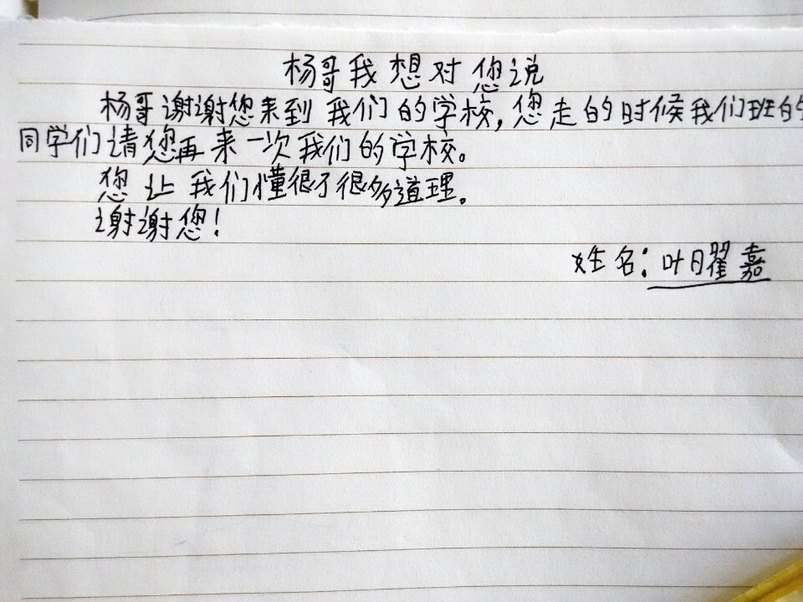 杨哥我想对您说
杨哥谢谢您来到我们的学校,您走的时候我们班的
同学们请您再来一次我们的学校。
您让我们懂很了很多道理。
谢谢您!
姓名:叶曜嘉